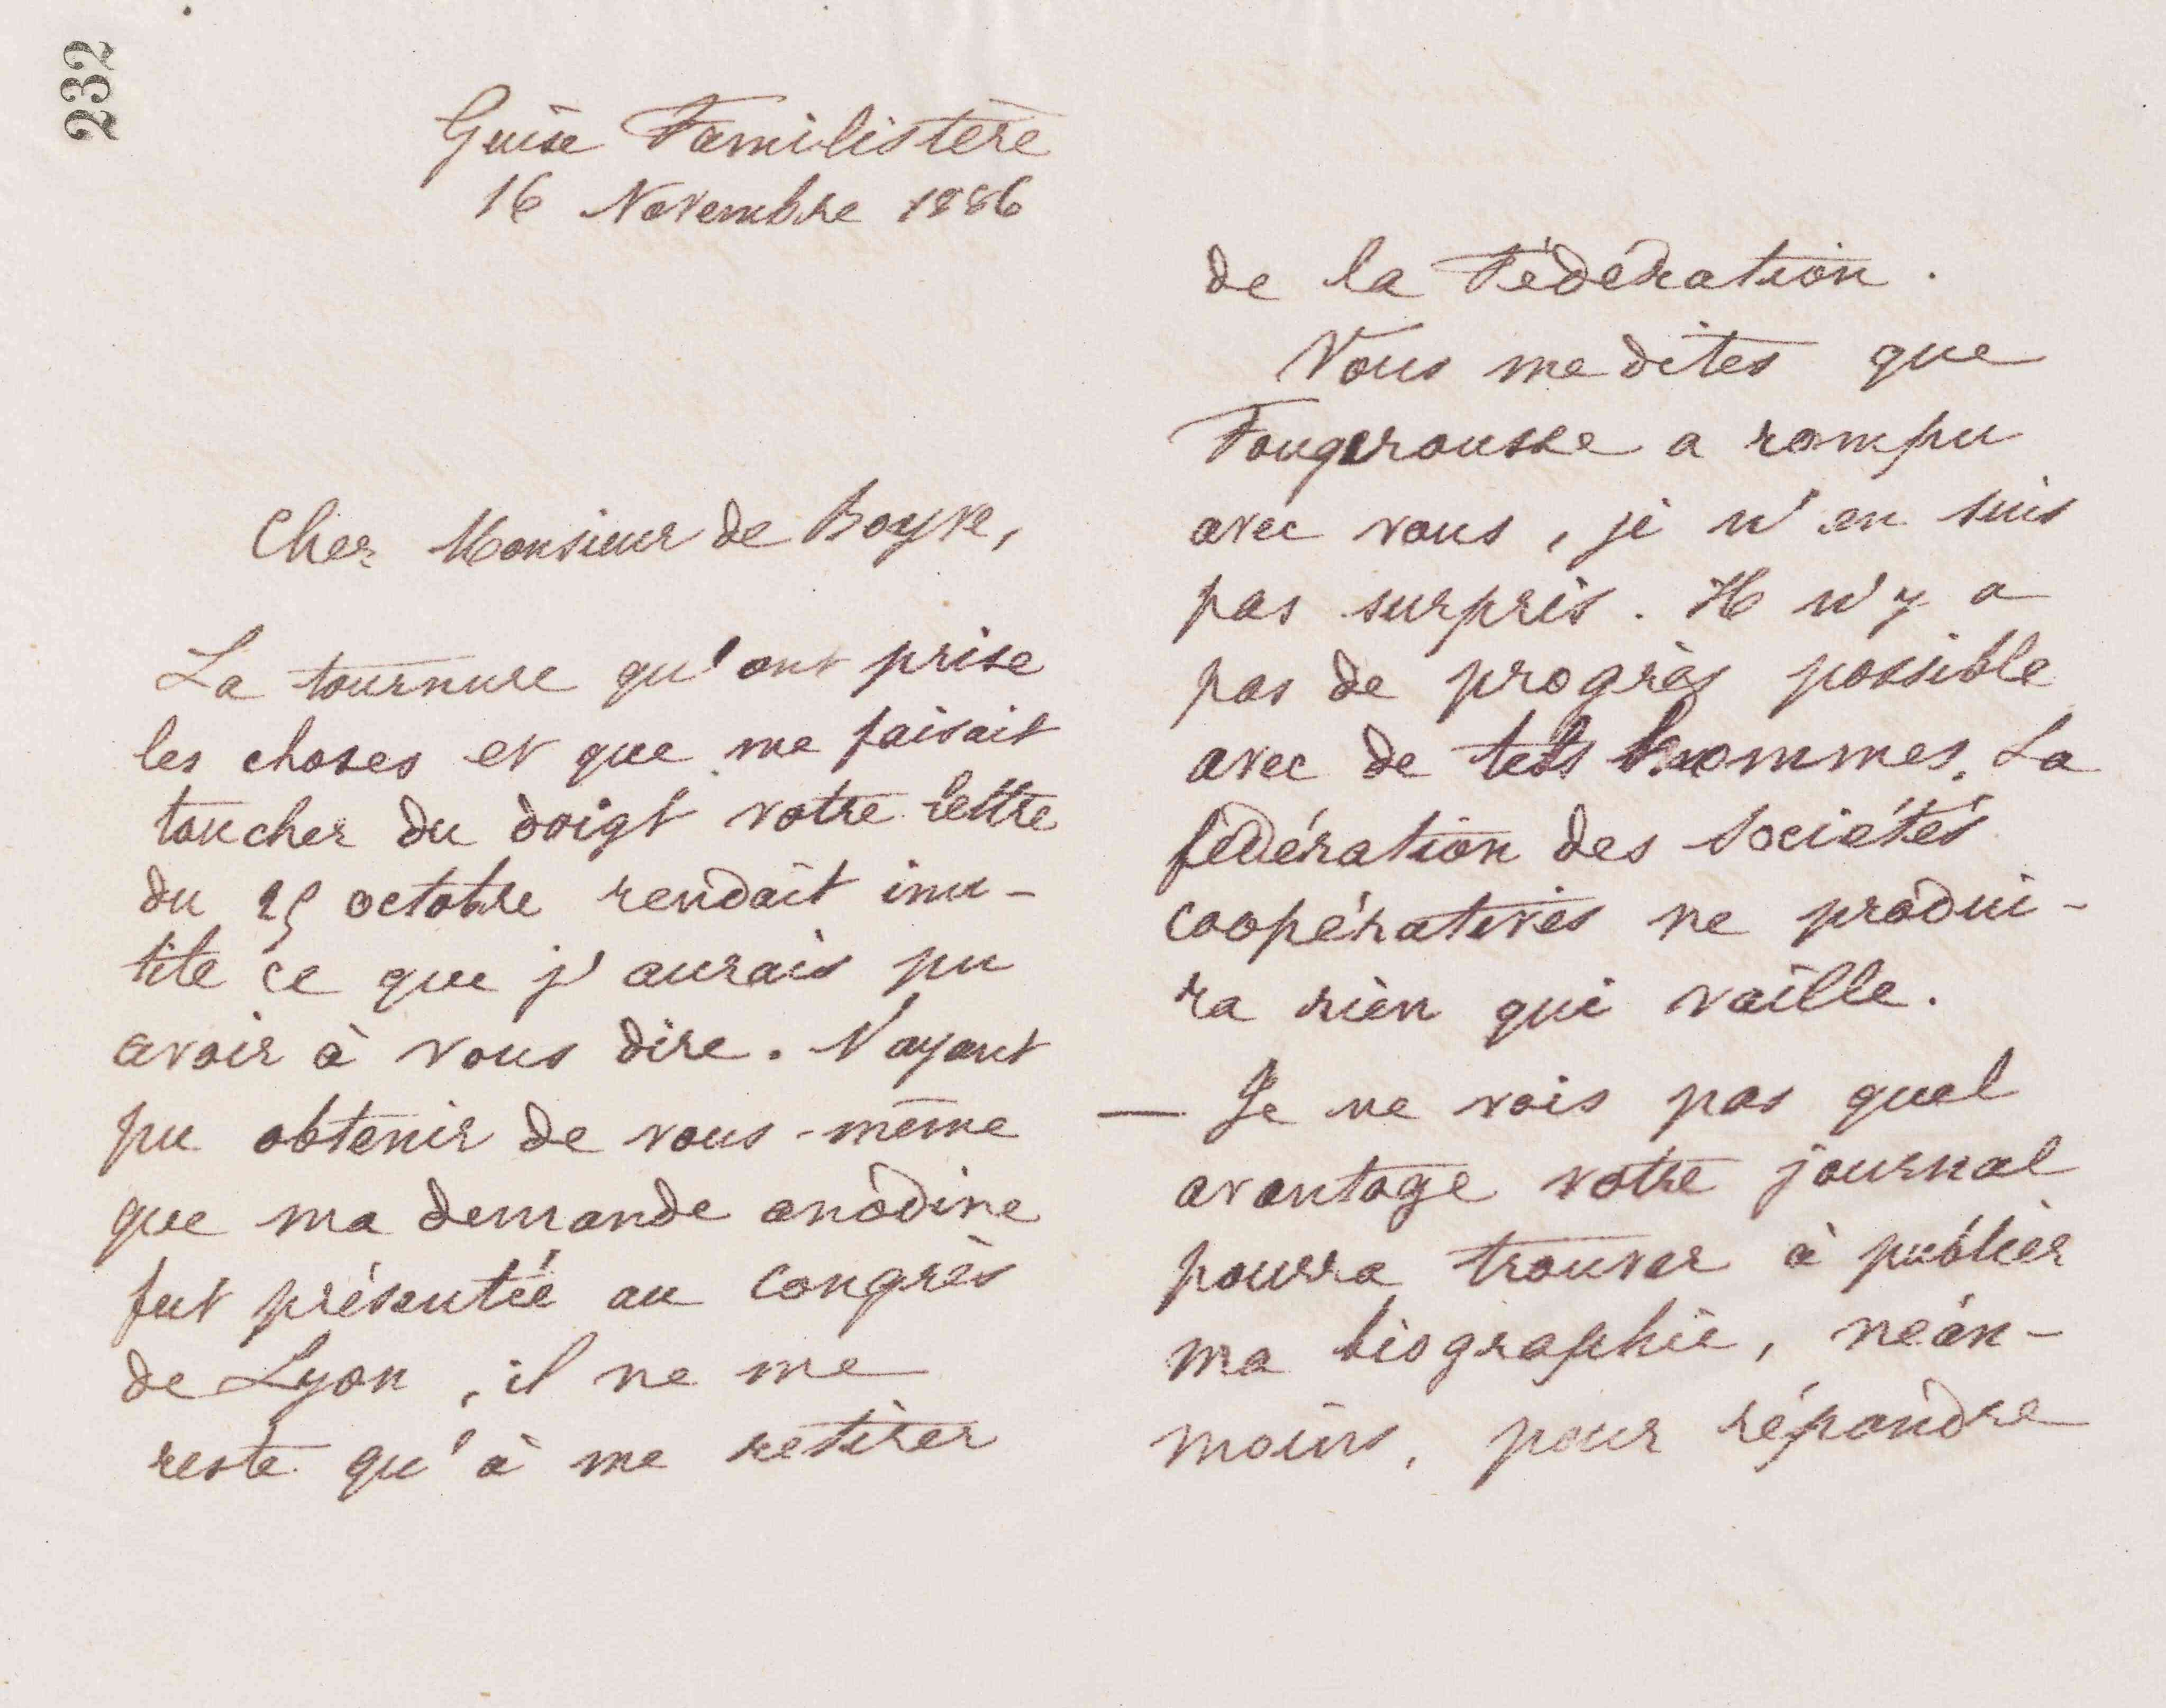 232
Guise Familistère
16 Novembre 1886
Cher Monsieur de Boyve,
La tournure qu'ont prise
les choses et que me faisait
toucher du doigt votre lettre
du 25 octobre rendait inu-
tile ce que j'aurais pu
avoir à vous dire. N'ayant
pu obtenir de vous-même
que ma demande anodine
fut présentée au congrès
de Lyon, il ne me
reste qu'à me retirer
de la Fédération.
Vous me dites que
Fougerousse a rompu
avec vous, je n'en suis
pas surpris. Il n'y a
pas de progrès possible
avec de tels hommes. La
fédération des sociétés
coopératives ne produi-
ra rien qui vaille.
— Je ne vois pas quel
avantage votre journal
pourra trouver à publier
ma biographie, néan-
moins, pour répondre